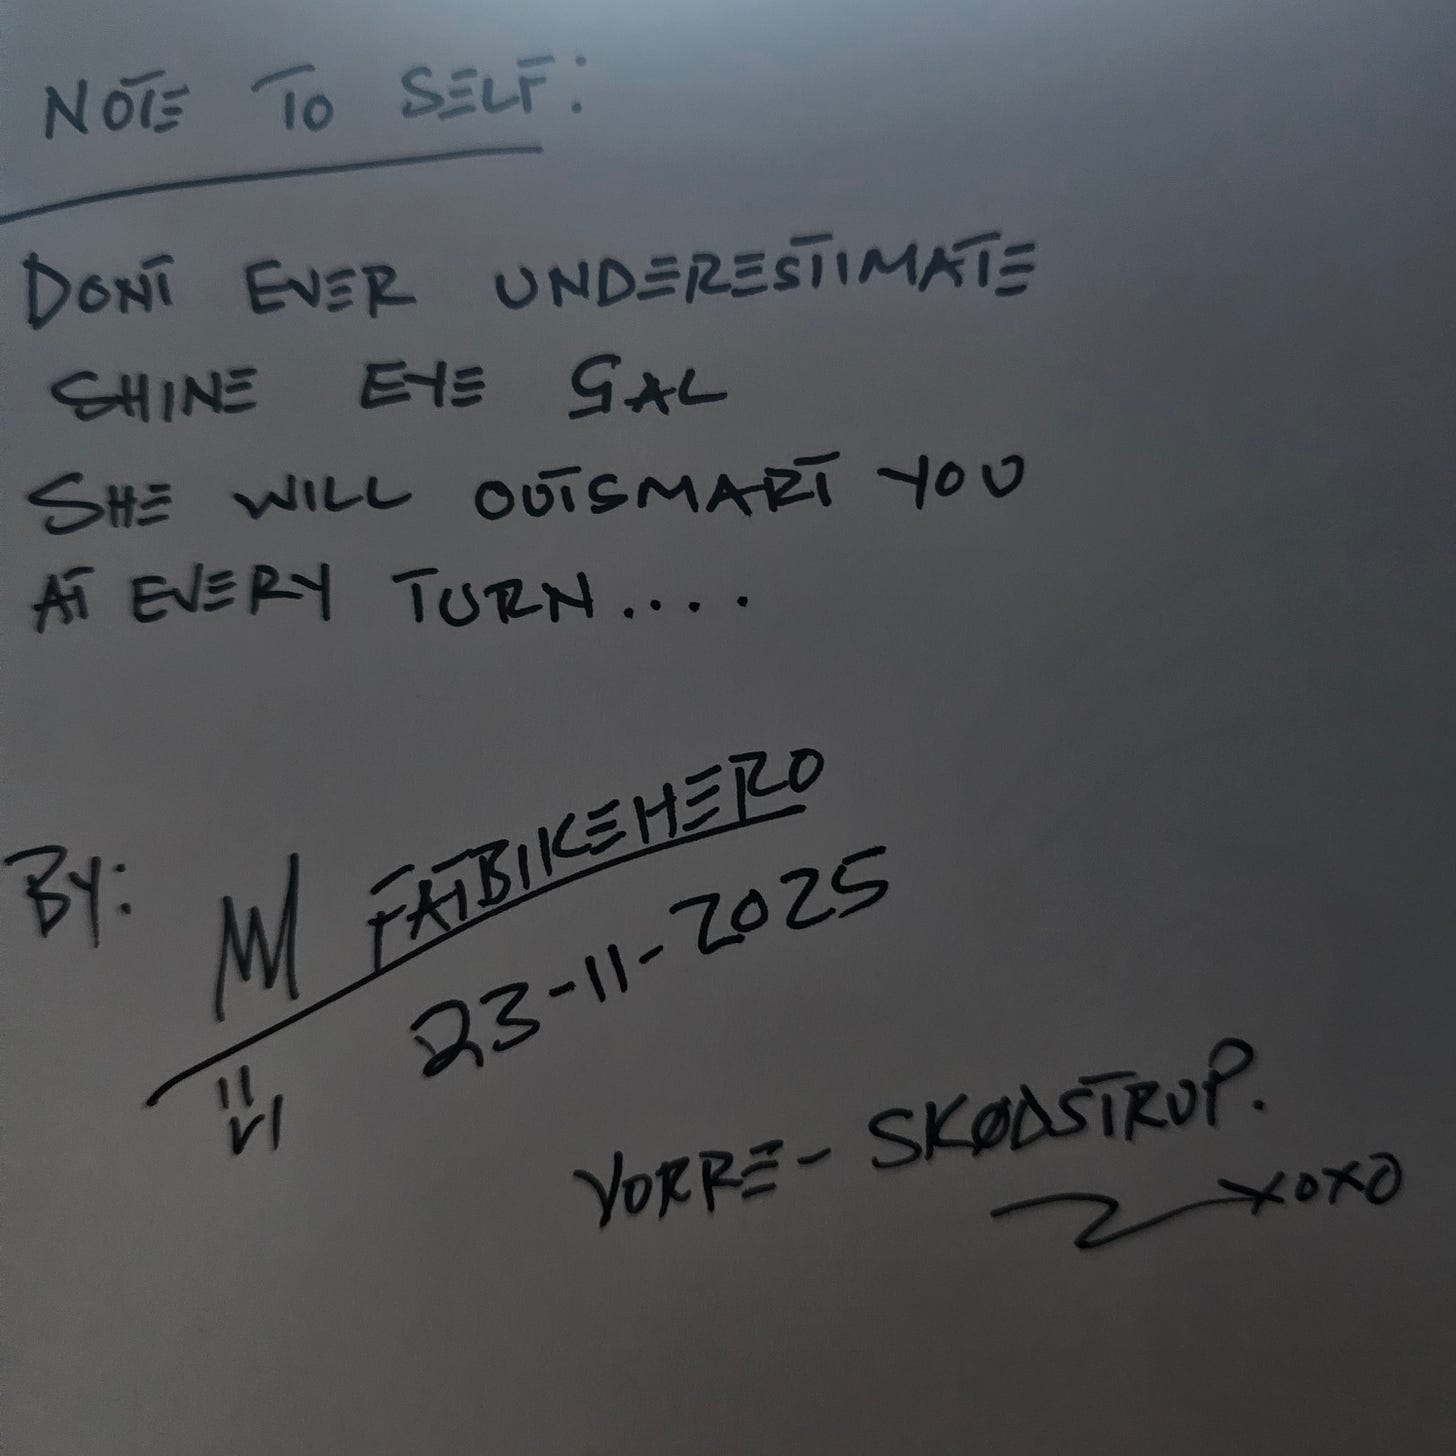 NOTE TO SELF:
DONT EVER UNDERESTIMATE
SHINE EYE GAL
SHE WILL OUTSMART YOU
AT EVERY TURN....
BY: FATBIKEHERO
23-11-2025
VORRE- SKØDSTRUP.
XOXO